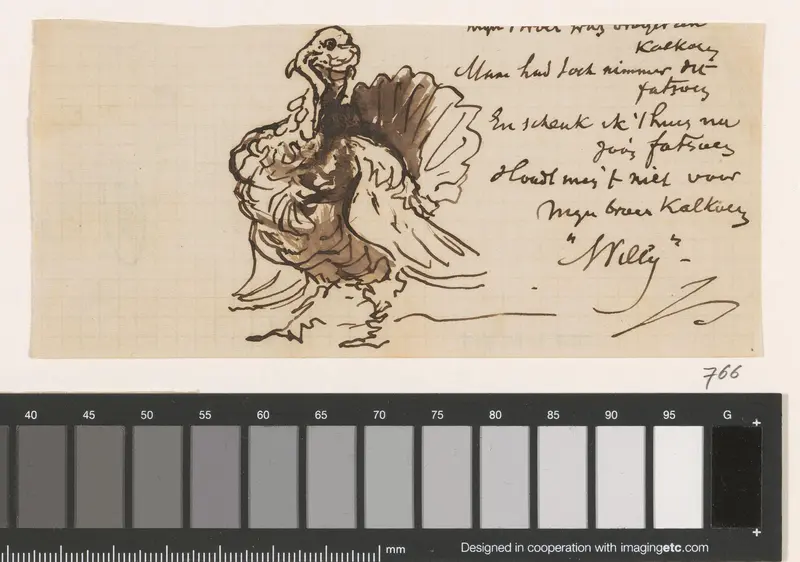 mijn broer was
Kalkoen
Maar had toch nimmer dit
fatsoen
En schenk ik 't huis nu
zoo'n fatsoen
Houdt mij 't niet voor
mijn broer Kalkoen
"Willy" -
766
40 45 50 55 60 65 70 75 80 85 90 95 G
mm
Designed in cooperation with imagingetc.com